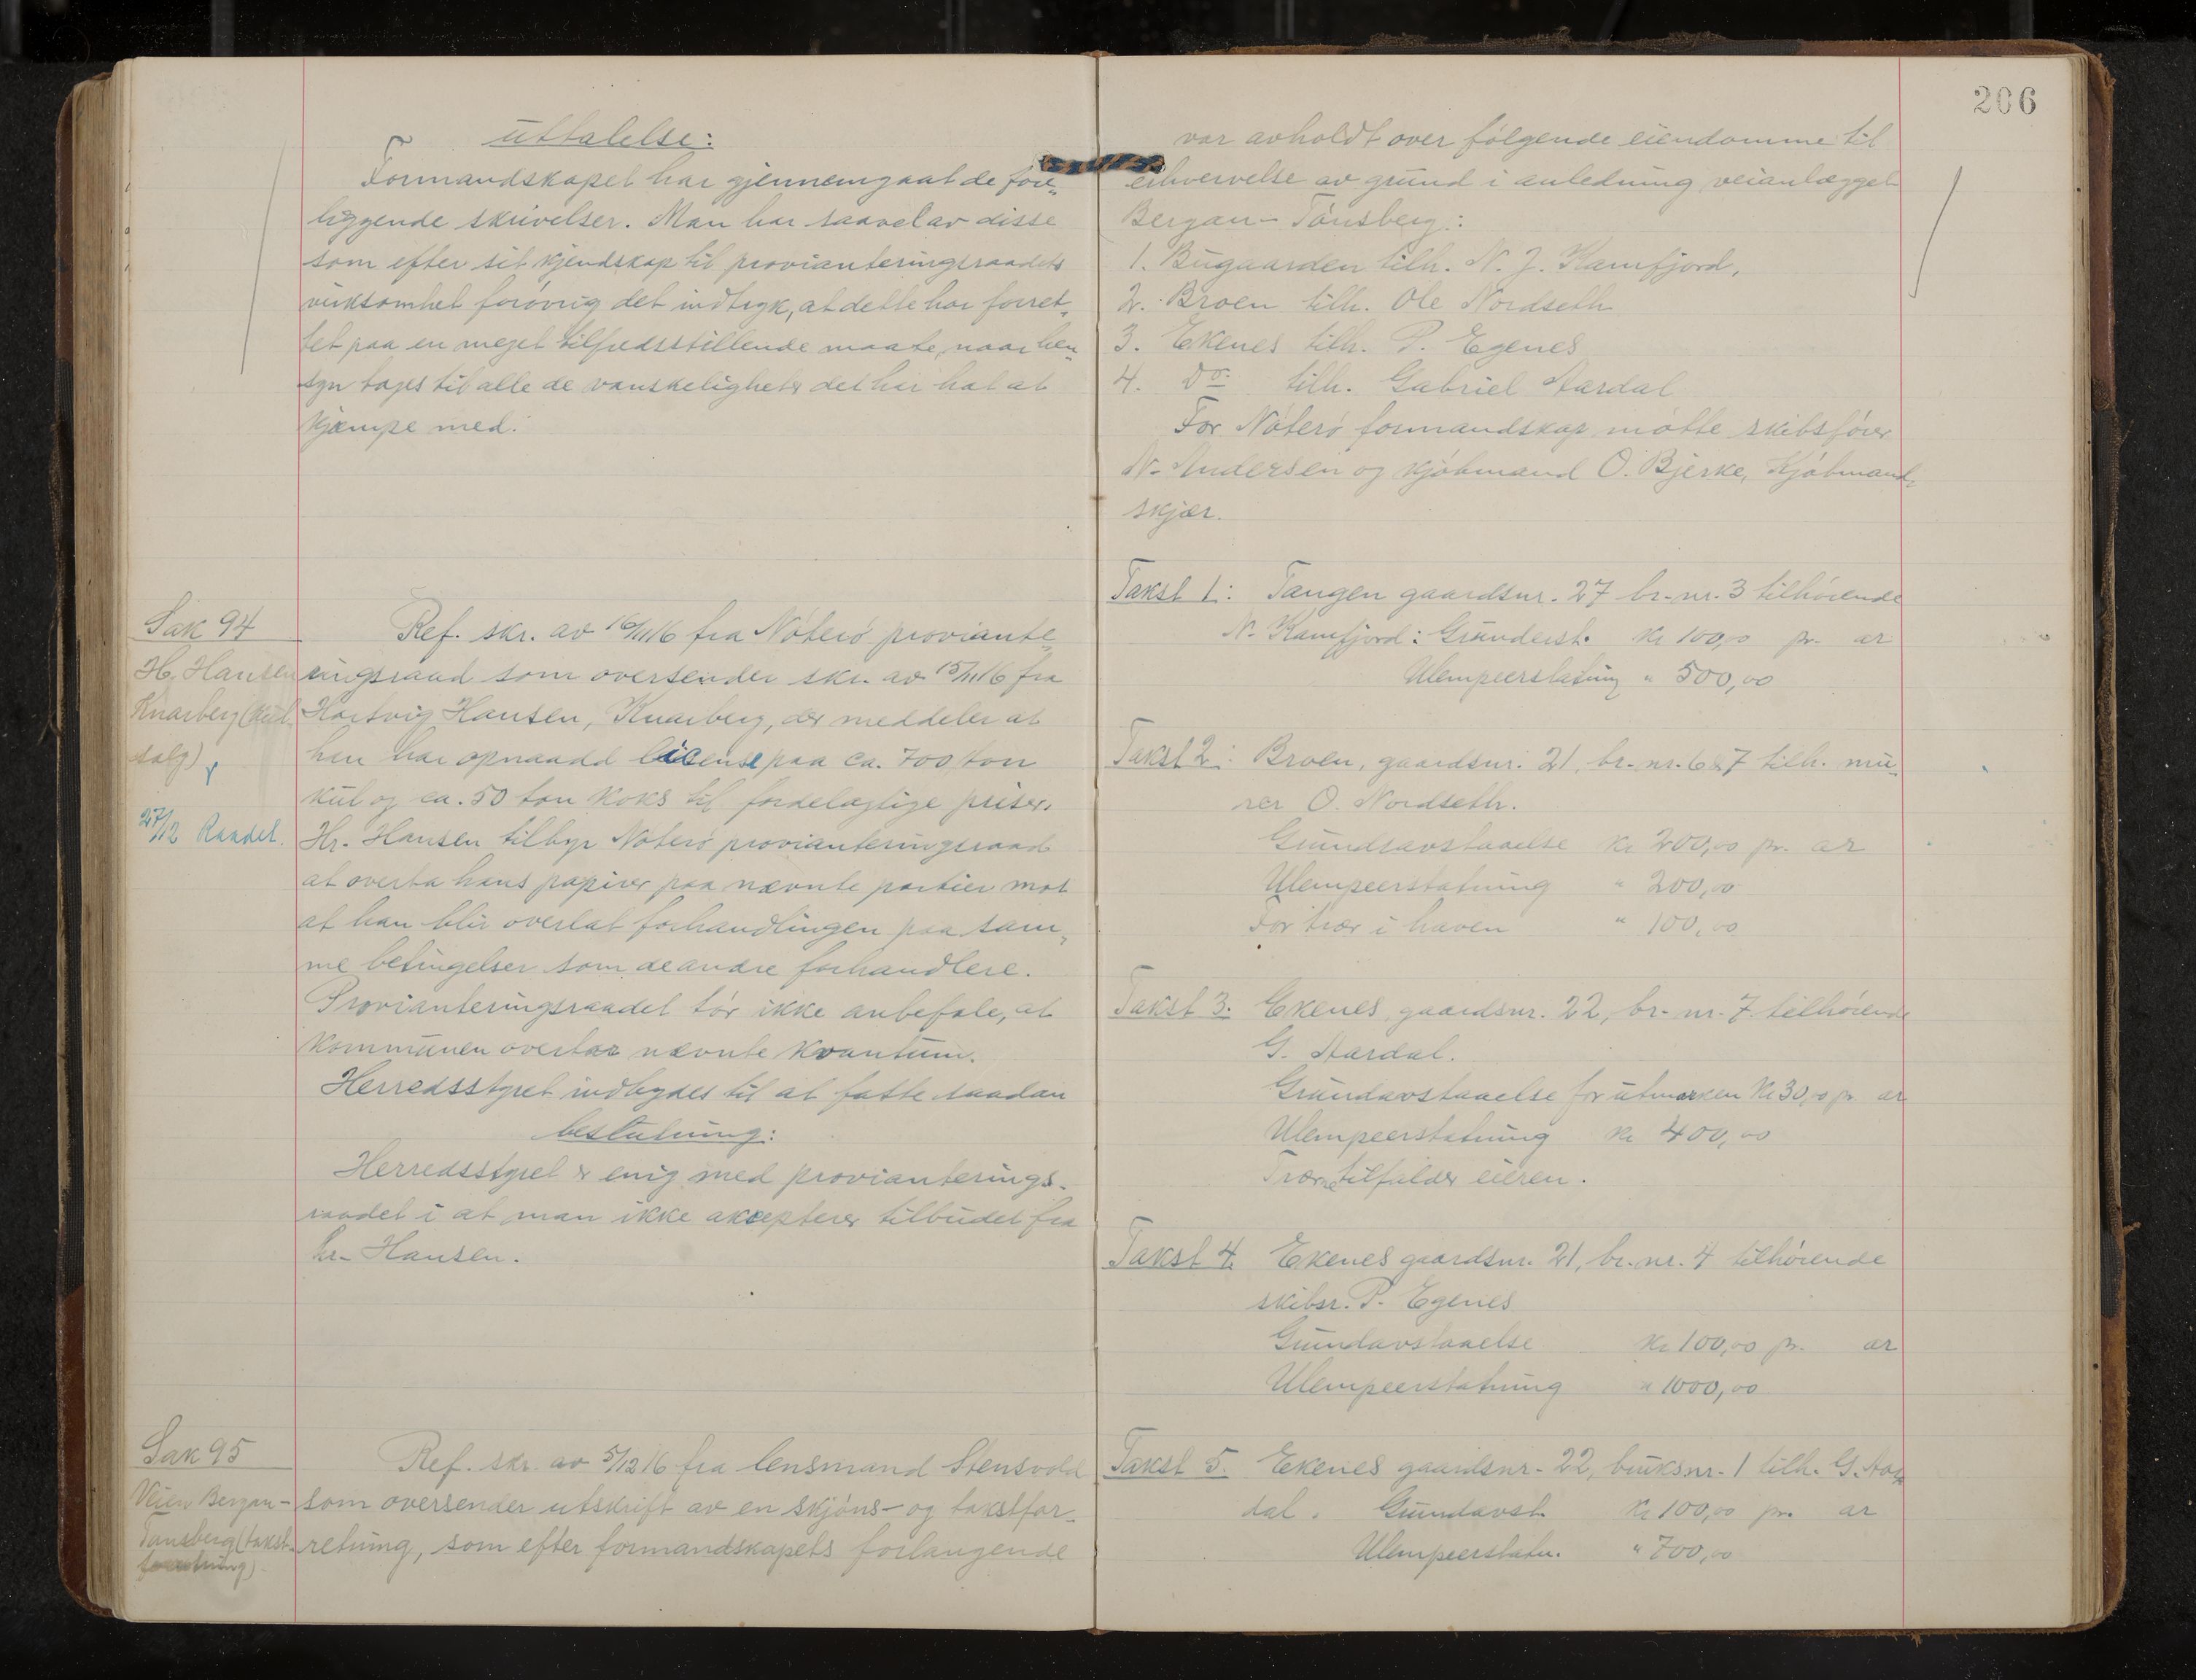 uttalelse:
Formandskapet har gjennemgaat de fore-
liggende skrivelser. Man har saavel av disse
som efter sit kjendskap til provianteringsraadets
virksomhet forøvrig det indtryk, at dette har forret-
tet paa en meget tilfredsstillende maate, naar hen-
syn tages til alle de vanskeligheter det har hat at
kjæmpe med.
Sak 94
H. Hansen
Knarberg (kul-
salg)
27/12 Raadet.
Ref. skr. av 16/11 16 fra Nøterø proviante-
ringsraad som oversender skr. av 15/11 16 fra
Hartvig Hansen, Knarberg, der meddeler at
han har opnaadd license paa ca. 700 ton
kul og ca. 50 ton koks til fordelagtige priser.
Hr. Hansen tilbyr Nøterø provianteringsraad
at overta hans papirer paa nævnte partier mot
at han blir overlat forhandlingen paa sam-
me betingelser som de andre forhandlere.
Provianteringsraadet tør ikke anbefale, at
kommunen overtar nævnte kvantum.
Herredsstyret indbydes til at fatte saadan
beslutning:
Herredsstyret er enig med provianterings-
raadet i at man ikke aksepterer tilbudet fra
hr. Hansen.
Sak 95
Veien Bergan-
Tønsberg (takst-
forretning)
Ref. skr. av 5/12 16 fra lensmand Stensvold
som oversender utskrift av en skjøns- og takstfor-
retning, som efter formandskapets forlangende
206
var avholdt over følgende eiendomme til
erhvervelse av grund i anledning veianlægget
Bergan- Tønsberg:
1. Bugaarden tilh. N. J. Kamfjord,
2. Broen tilh. Ole Nordseth
3. Ekenes tilh. P. Egenes
4. Do tilh. Gabriel Aardal
For Nøterø formandskap møtte skibsfører
N. Andersen og kjøbmand O. Bjerke, Kjøbmand-
skjær.
Takst 1: Tangen gaardsnr. 27 br.nr. 3 tilhørende
N. Kamfjord: Grunderst. Kr 100,00 pr. ar
Ulempeerstatning " 500,00
Takst 2: Broen, gaardsnr. 21, br.nr. 6 & 7 tilh. mu-
rer O. Nordseth.
Grundavstaaelse Kr 200,00 pr. ar
Ulempeerstatning " 200,00
For trær i haven " 100,00
Takst 3. Ekenes, gaardsnr. 22, br. nr. 7 tilhørende
G. Aardal.
Grundavstaaelse for utmarken Kr 30,00 pr ar
Ulempeerstatning Kr 400,00
Trærne tilfalder eieren.
Takst 4. Ekenes gaardsnr. 21, br. nr. 4 tilhørende
skibsr. P. Egenes
Grundavstaaelse Kr 100,00 pr. ar
Ulempeerstatning " 1000,00
Takst 5. Ekenes gaardsnr. 22, bruksnr. 1 tilh. G. Aar-
dal. Grundavst. Kr 100,00 pr. ar
Ulempeerstatn. " 700,00